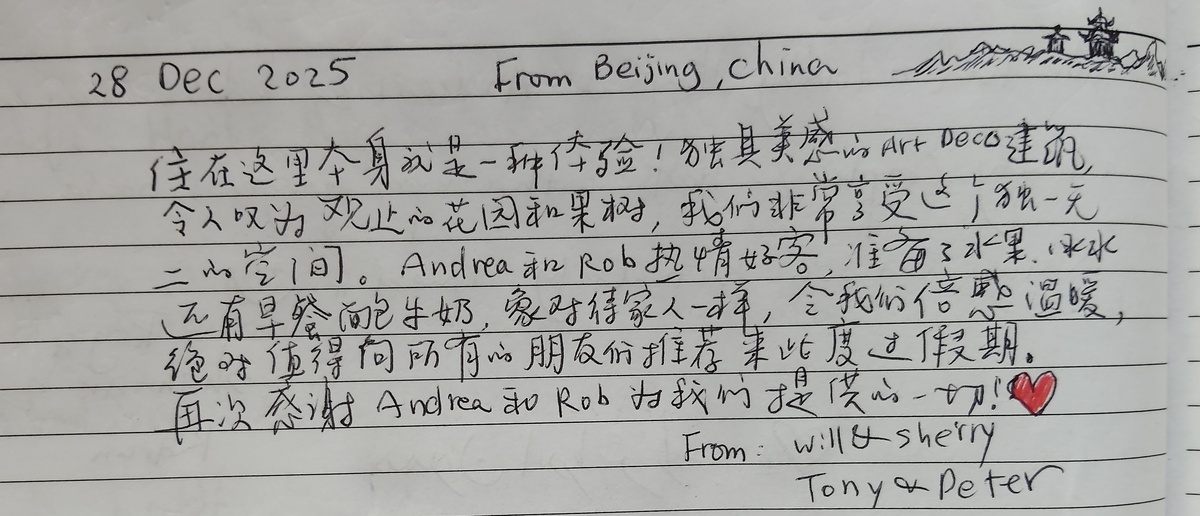 28 Dec 2025 From Beijing, China
住在这里本身就是一种体验！独具美感的Art Deco建筑，
令人叹为观止的花园和果树，我们非常享受这个独一无
二的空间。Andrea和Rob热情好客，准备了水果、冰水
还有早餐面包牛奶，象对待家人一样，令我们倍感温暖，
绝对值得向所有的朋友们推荐来此度过假期。
再次感谢Andrea和Rob为我们提供的一切！
From: Will & Sherry
Tony & Peter